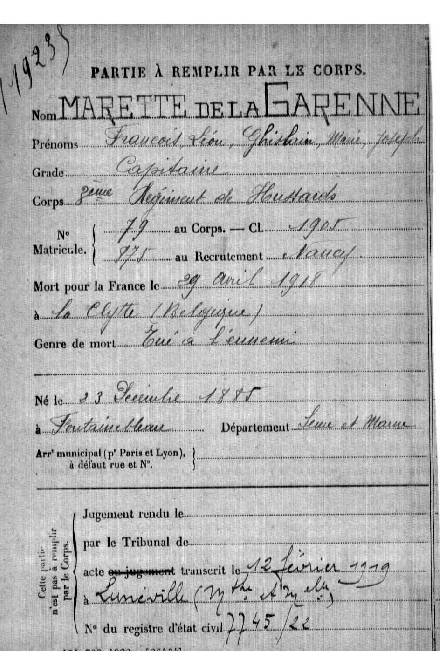 (1923)
PARTIE À REMPLIR PAR LE CORPS.
Nom MARETTE DE LA GARENNE
Prénoms François Léon, Ghislain, Marie, Joseph
Grade Capitaine
Corps 8ème Régiment de Hussards
N° Matricule. { 79 au Corps. — Cl. 1905
875 au Recrutement Nancy
Mort pour la France le 29 avril 1918
à la Clytte (Belgique)
Genre de mort Tué à l'ennemi
Né le 23 Décembre 1885
à Fontainebleau Département Seine et Marne
Arrt municipal (pr Paris et Lyon), à défaut rue et N°.
Cette partie n'est pas à remplir par le Corps.
Jugement rendu le
par le Tribunal de
acte ou jugement transcrit le 12 février 1919
à Lunéville (Mthe et Mlle)
N° du registre d'état civil 7745/22